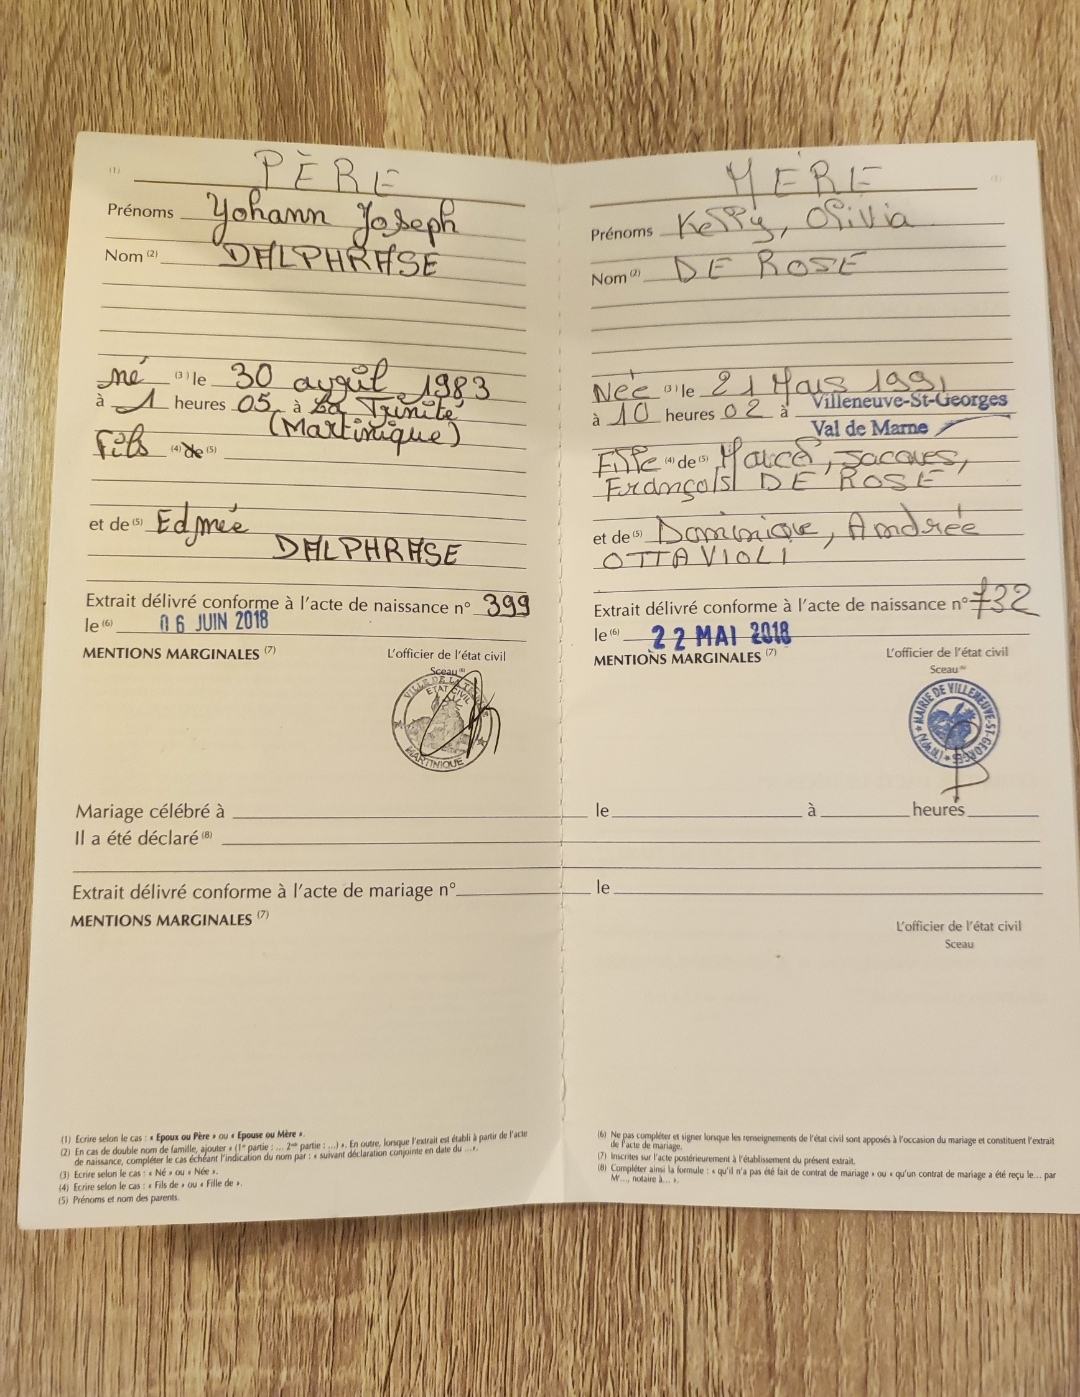 (1) PÈRE
Prénoms Yohann Joseph
Nom (2) DALPHRASE
né (3) le 30 avril 1983
à 1 heures 05 à La Trinité
(Martinique)
Fils (4) de (5)
et de (5) Edmée
DALPHRASE
Extrait délivré conforme à l'acte de naissance n° 399
le (6) 06 JUIN 2018
MENTIONS MARGINALES (7)
L'officier de l'état civil
Sceau (6)
VILLE DE LA
ETAT CIVIL
MARTINIQUE
MÈRE (1)
Prénoms Kelly, Olivia
Nom (2) DE ROSE
Née (3) le 21 Mars 1991
à 10 heures 02 à Villeneuve-St-Georges
Val de Marne
Fille (4) de (5) Marcel, Jacques,
François DE ROSE
et de (5) Dominique, Andrée
OTTAVIOLI
Extrait délivré conforme à l'acte de naissance n° 732
le (6) 22 MAI 2018
MENTIONS MARGINALES (7)
L'officier de l'état civil
Sceau (6)
MAIRIE DE VILLENEUVE-ST-GEORGES
Mariage célébré à le à heures
Il a été déclaré (8)
Extrait délivré conforme à l'acte de mariage n° le
MENTIONS MARGINALES (7)
L'officier de l'état civil
Sceau
(1) Ecrire selon le cas : « Epoux ou Père » ou « Epouse ou Mère ».
(2) En cas de double nom de famille, ajouter « (1re partie : ... 2me partie : ...) ». En outre, lorsque l'extrait est établi à partir de l'acte
de naissance, compléter le cas échéant l'indication du nom par : « suivant déclaration conjointe en date du ... ».
(3) Ecrire selon le cas : « Né » ou « Née ».
(4) Ecrire selon le cas : « Fils de » ou « Fille de ».
(5) Prénoms et nom des parents.
(6) Ne pas compléter et signer lorsque les renseignements de l'état civil sont apposés à l'occasion du mariage et constituent l'extrait
de l'acte de mariage.
(7) Inscrites sur l'acte postérieurement à l'établissement du présent extrait.
(8) Compléter ainsi la formule : « qu'il n'a pas été fait de contrat de mariage » ou « qu'un contrat de mariage a été reçu le... par
Me..., notaire à... ».